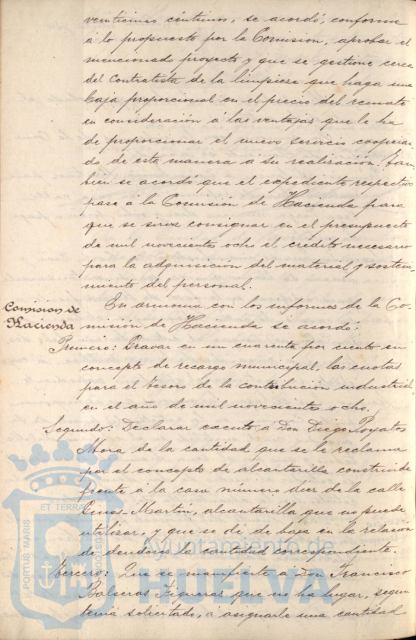 venticinco céntimos, se acordó, conforme
á lo propuesto por la Comision, aprobar el
mencionado proyecto y que se gestione cerca
del Contratista de la limpieza que haga una
baja proporcional en el precio del remate
en consideración á las ventajas que le ha
de proporcionar el nuevo servicio cooperan
do de esta manera á su realización. Tam
bien se acordó que el expediente respectivo
pase á la Comisión de Hacienda para
que se sirva consignar en el presupuesto
de mil novecientos ocho el crédito necesario
para la adquisición del material y sosteni
miento del personal.
Comision de
Hacienda
En armonia con los informes de la Co-
misión de Hacienda se acordó:
Primero: Gravar en un cuarenta por ciento en
concepto de recargo municipal las cuotas
para el Tesoro de la contribución industrial
en el año de mil novecientos ocho.
Segundo: Declarar exento á Don Diego Poyatos
Mora de la cantidad que se le reclama
por el concepto de alcantarilla construida
frente á la casa número diez de la calle
Martin, alcantarilla que no puede
utilizar, y que se dé de baja en la relación
de deudores la cantidad correspondiente.
Tercero: Que se manifieste á Don Francisco
Balseros Figueras que no ha lugar, segun
tenia solicitado, á asignarle una cantidad
PORTUS MARIS
ET TERRAE
Ayuntamiento de
HUELVA